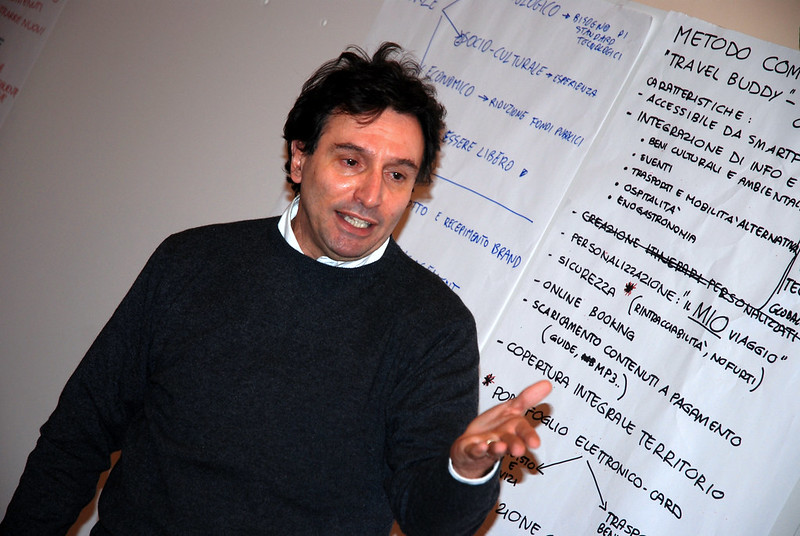 OLOGICO → BISOGNO DI
STANDARD
TECNOLOGICI
SOCIO-CULTURALE → ESPERIENZA
ECONOMICO → RIDUZIONE FONDI PUBBLICI
ESSERE LIBERO
E RECEPIMENTO BRAND
METODO COM
"TRAVEL BUDDY" -
CARATTERISTICHE:
- ACCESSIBILE DA SMARTF
- INTEGRAZIONE DI INFO E
• BENI CULTURALI E AMBIENTA
• EVENTI
• TRASPORTI E MOBILITA' ALTERNATIVA
• OSPITALITA'
• ENOGASTRONOMIA
- CREAZIONE ITINERARI PERSONALIZZATI
- PERSONALIZZAZIONE: "IL MIO VIAGGIO"
GLOBAL
- SICUREZZA * (RINTRACCIABILITA', NO FURTI)
- ONLINE BOOKING
- SCARICAMENTO CONTENUTI A PAGAMENTO
(GUIDE, MP3..)
- COPERTURA INTEGRALE TERRITORIO
* PORTAFOGLIO ELETTRONICO-CARD
E
TRASP
BENI